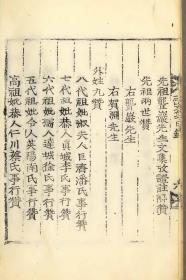 先祖聾巖先生文集攷證註解贊
先祖兩世贊
右聾巖先生
右賀淵先生
外姓九贊
八代祖妣淑夫人巨濟潘氏事行贊
七代祖妣恭人眞城李氏事行贊
六代祖妣孺人達城徐氏事行贊
五代祖妣令人英陽南氏事行贊
高祖妣恭人仁川蔡氏事行贊